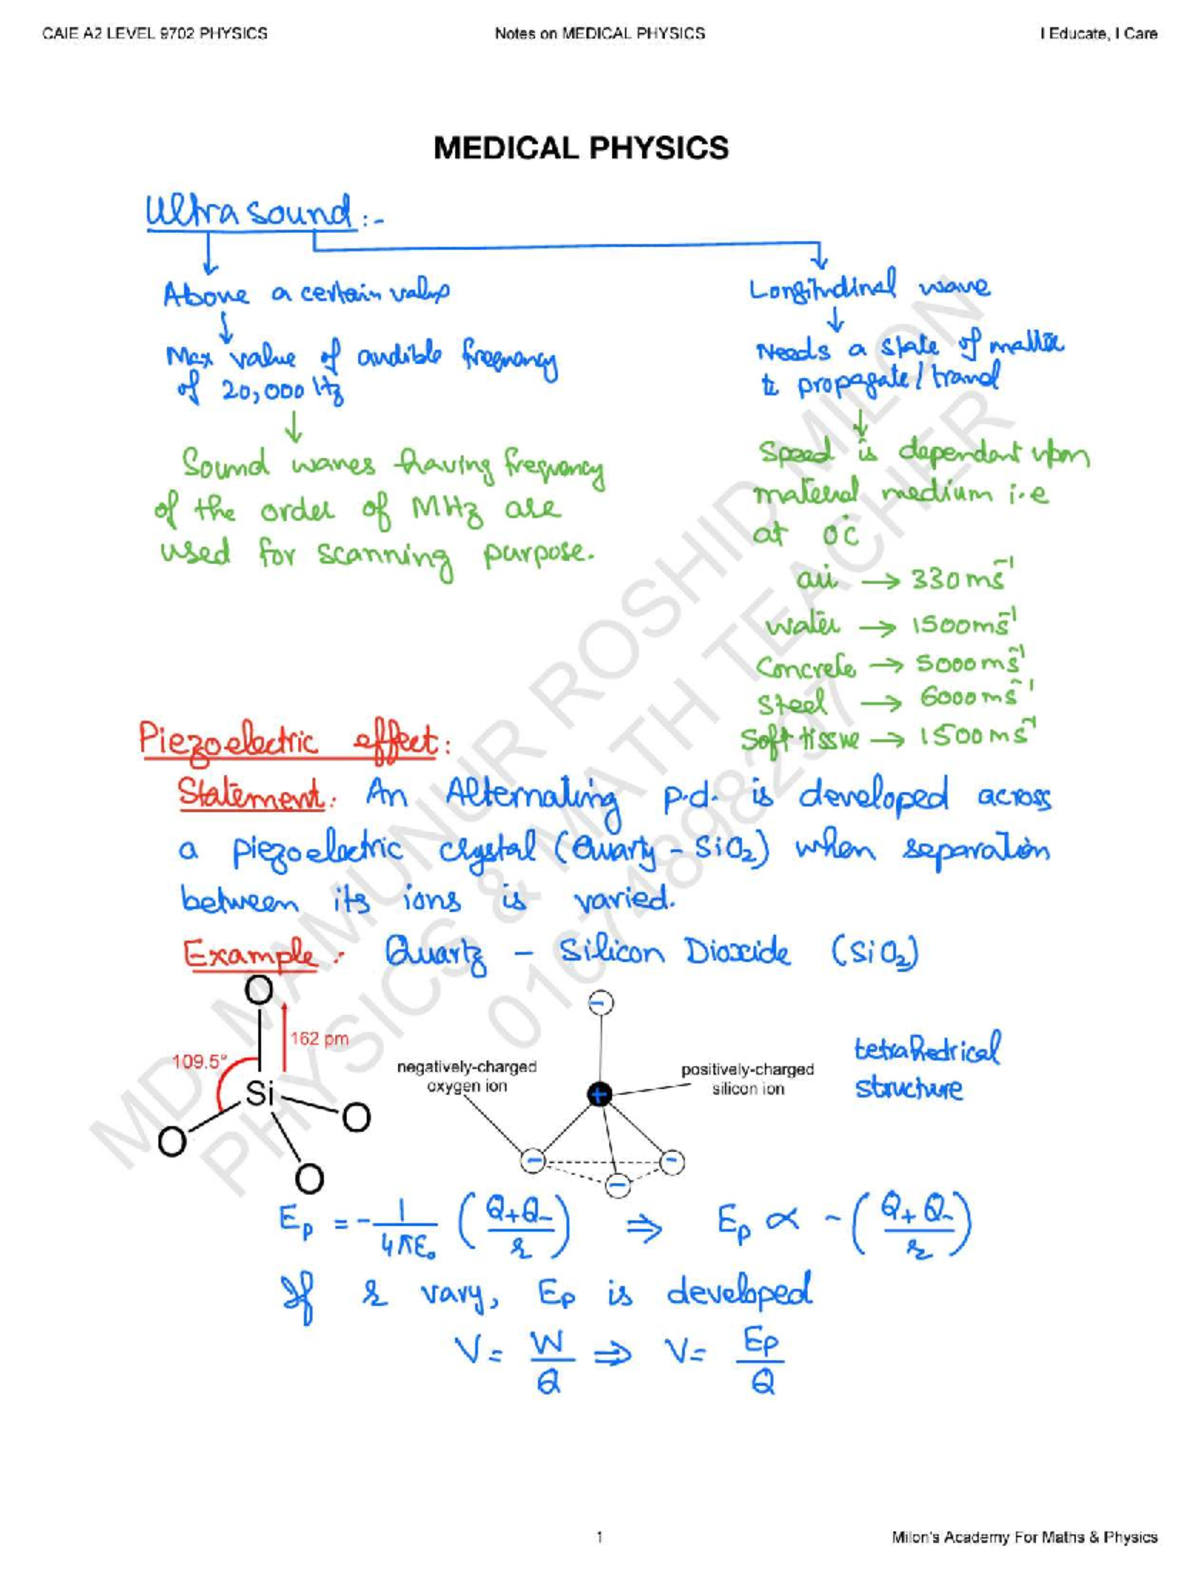 CAIE A2 LEVEL 9702 PHYSICS
Notes on MEDICAL PHYSICS
I Educate, I Care
MEDICAL PHYSICS
Ultrasound :-
Above a certain value
Max value of audible frequency
of 20,000 Hz
Sound waves having frequency
of the order of MHz are
used for scanning purpose.
Longitudinal wave
Needs a state of matter
to propagate/travel
Speed is dependent upon
material medium i.e
at 0°C
air → 330 ms⁻¹
water → 1500 ms⁻¹
Concrete → 5000 ms⁻¹
Steel → 6000 ms⁻¹
Soft tissue → 1500 ms⁻¹
Piezoelectric effect:
Statement: An Alternating p.d. is developed across
a piezoelectric crystal (Quartz - SiO₂) when separation
between its ions is varied.
Example:- Quartz - Silicon Dioxide (SiO₂)
O
162 pm
109.5°
Si
O
O
O
negatively-charged
oxygen ion
positively-charged
silicon ion
−
+
−
−
−
tetrahedrical
structure
Ep = - 1/4πε₀ (Q₊Q₋/r) ⇒ Ep ∝ - (Q₊Q₋/r)
If r vary, Ep is developed
V = W/Q ⇒ V = Ep/Q
MD. MAMUNUR ROSHID MILON
PHYSICS & MATH TEACHER
01674898297
1
Milon's Academy For Maths & Physics